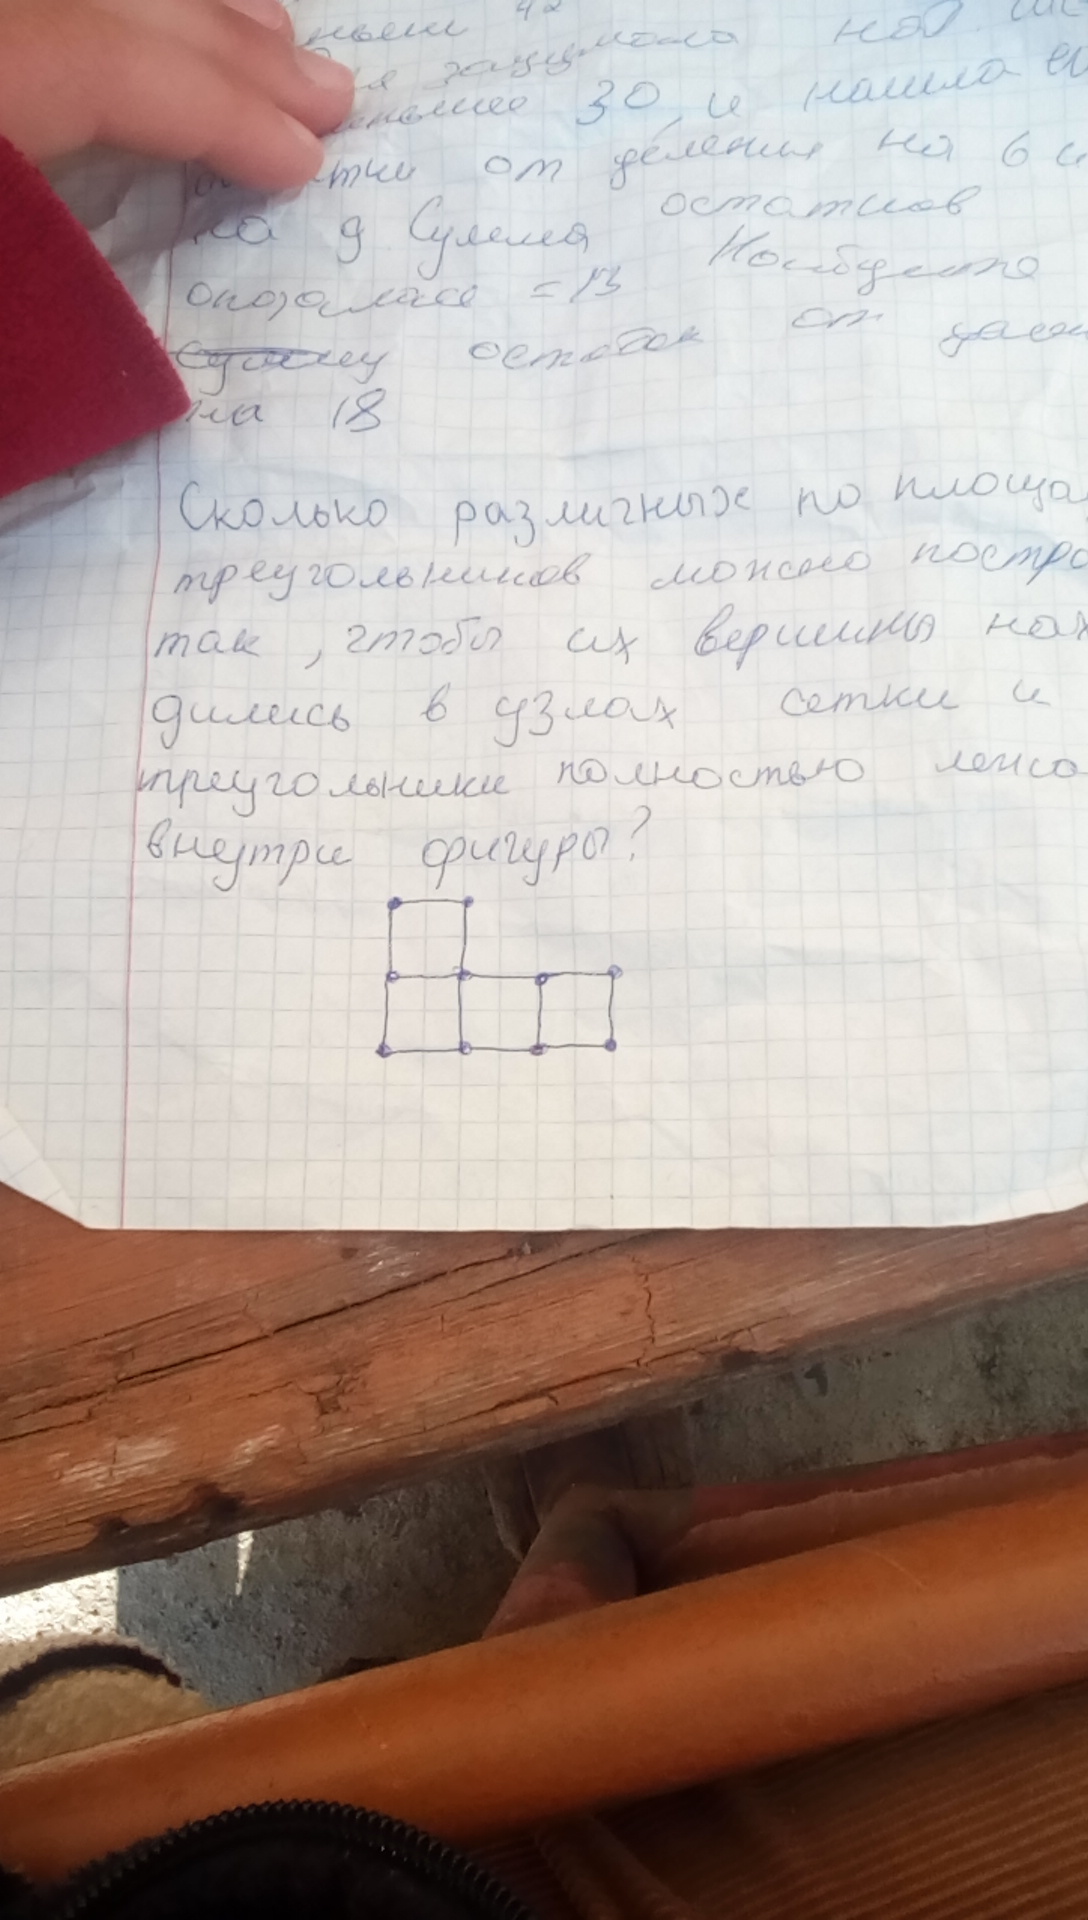 42
задумала
30, и нашла
от деления на 6
на 9 Сумма остатков
оказалась = 13
остаток от
на 18
Сколько различных по площа
треугольников можно постро
так, чтобы их вершины нах
дились в узлах сетки и
треугольники полностью лежа
внутри фигуры?